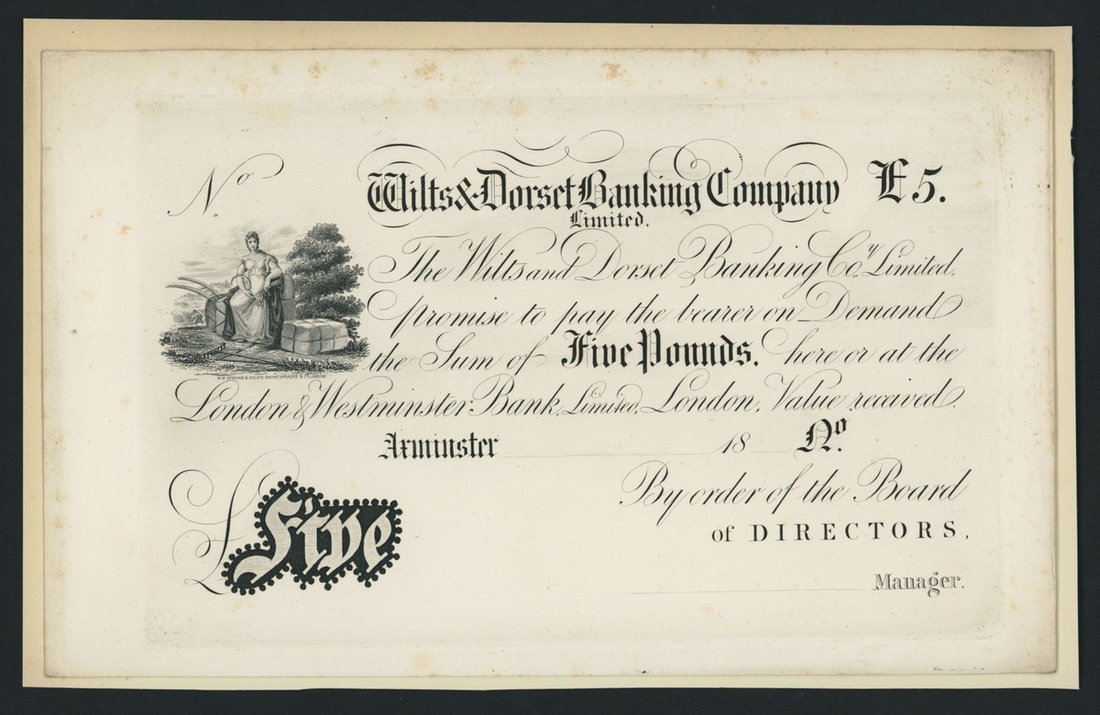 No
Wilts & Dorset Banking Company £5.
Limited.
The Wilts and Dorset Banking Coy. Limited,
promise to pay the bearer on Demand
the Sum of Five Pounds, here or at the
London & Westminster Bank, Limited, London, Value received.
Axminster 18 No.
By order of the Board
of DIRECTORS,
£ Five
Manager.